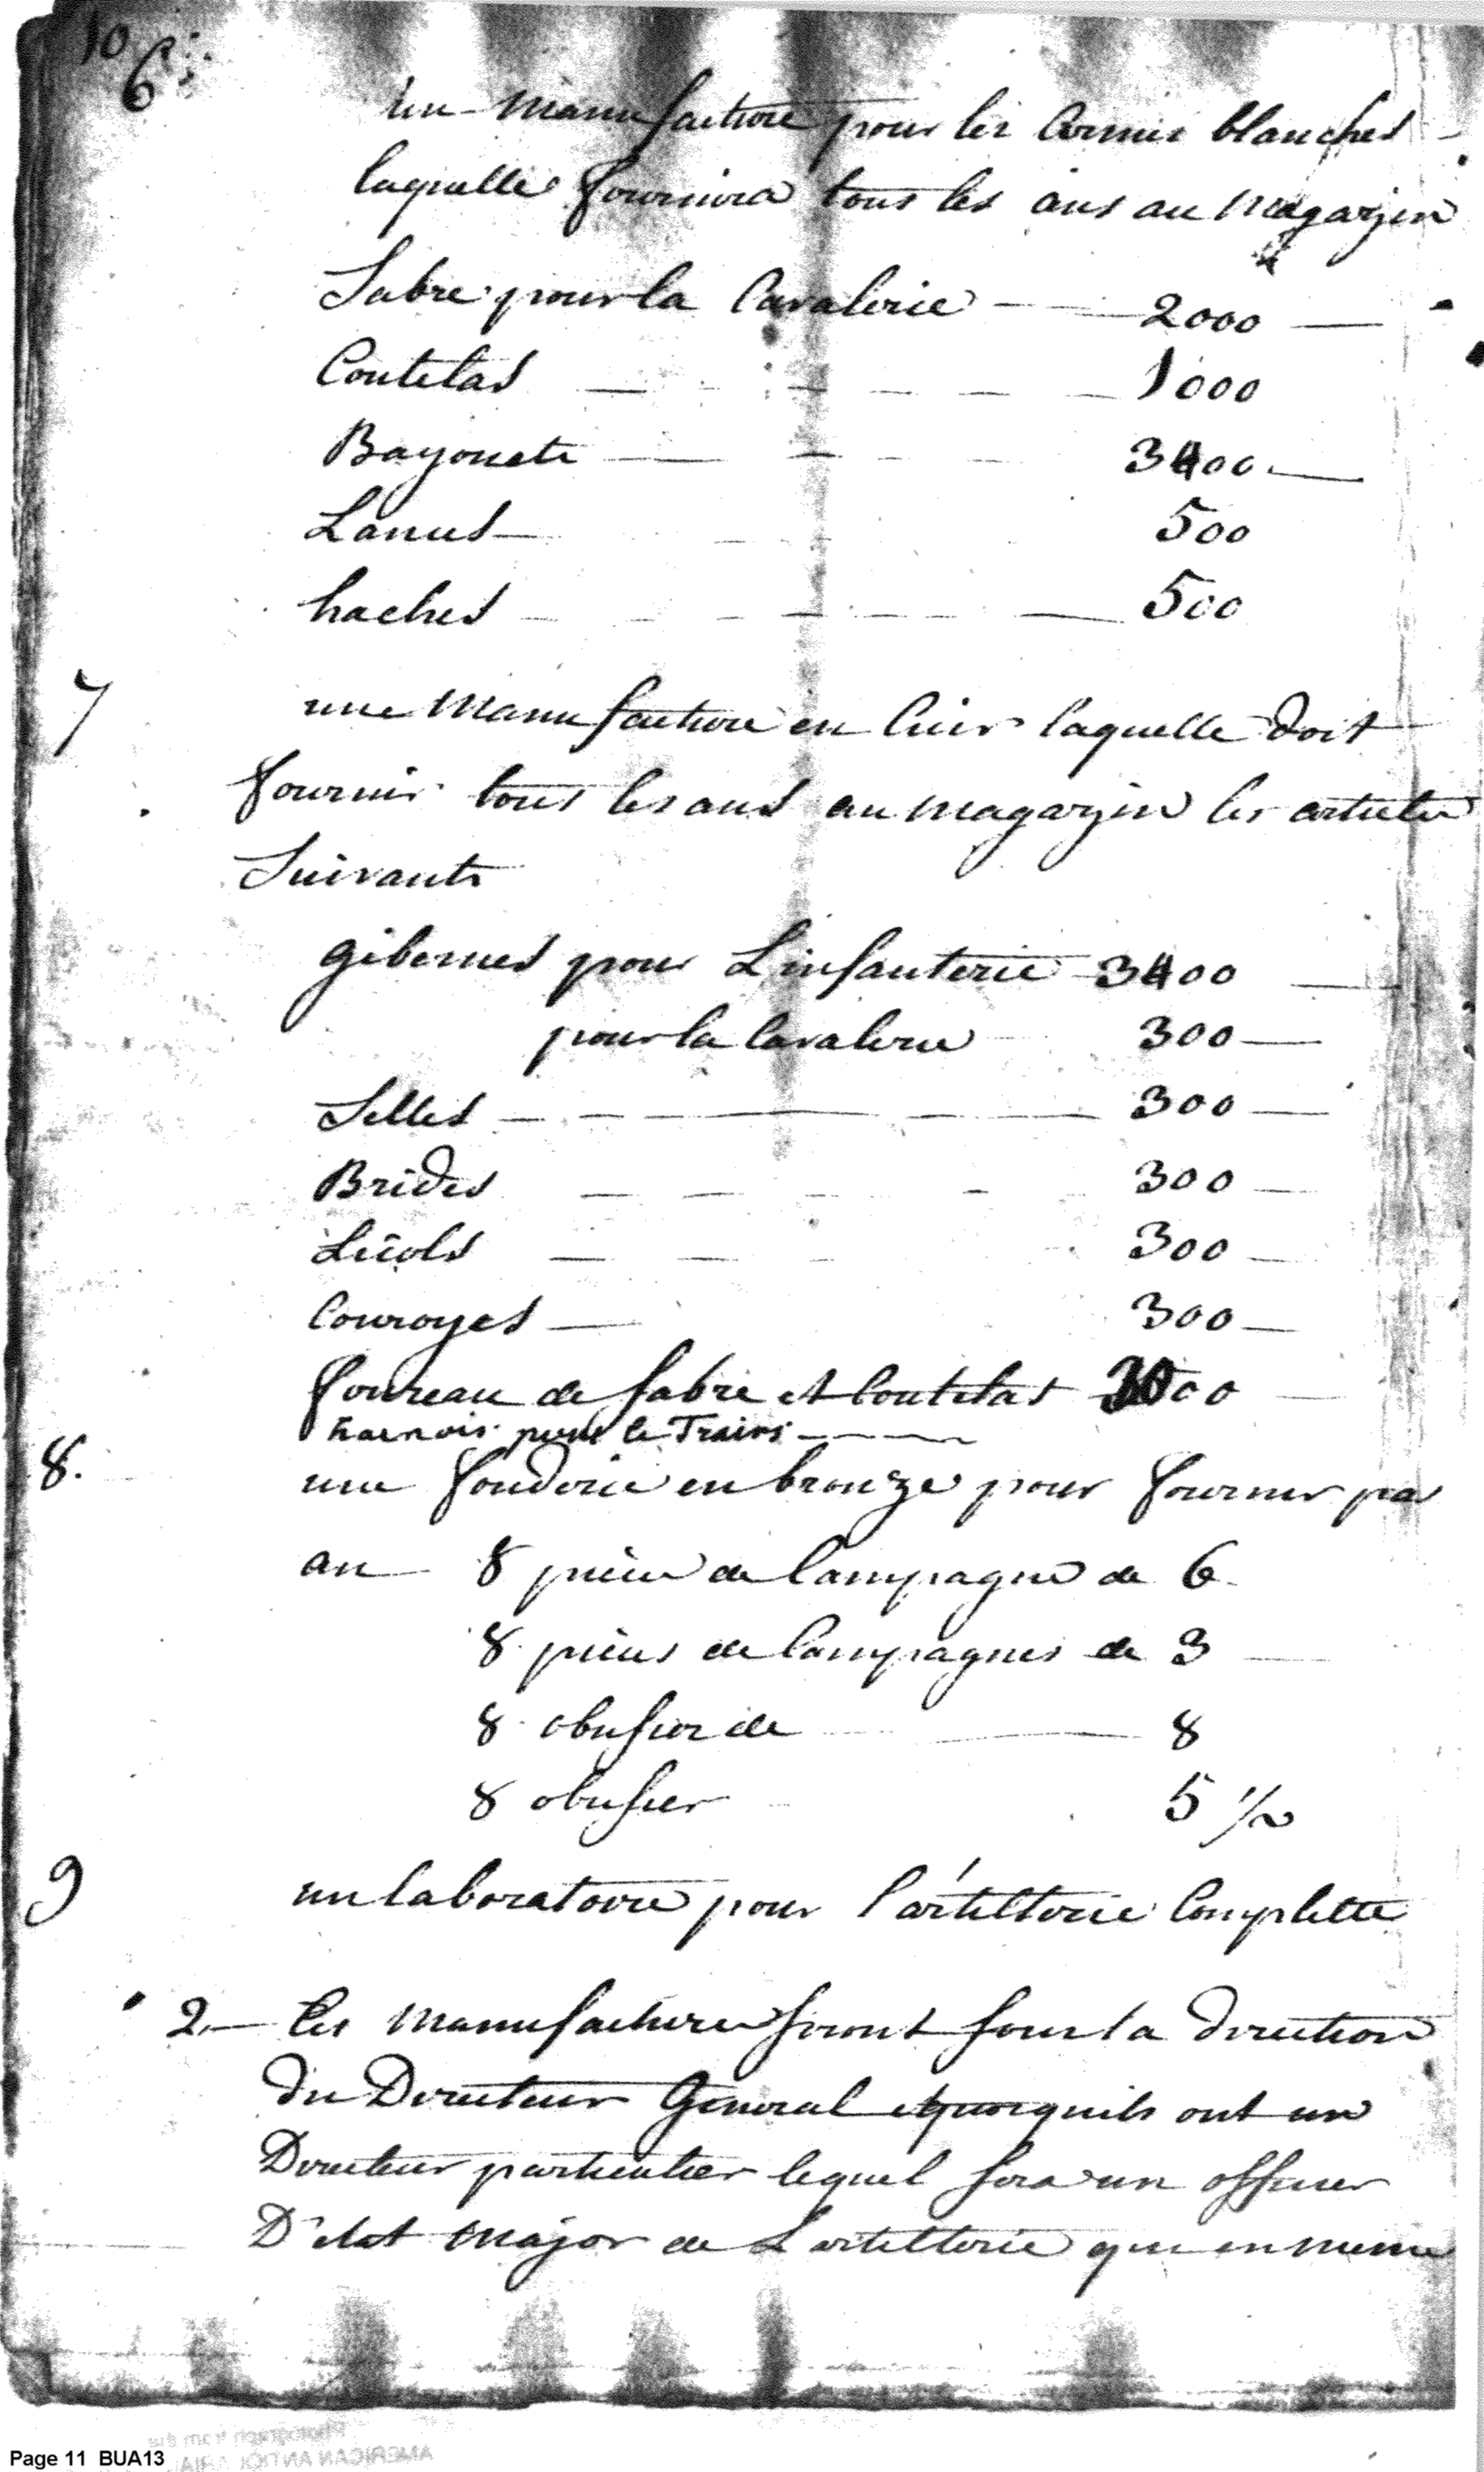 10
6
Une Manufacture pour les Armes blanches
laquelle fournira tous les ans au Magazin
Sabre pour la Cavalerie — 2000 —
Coutelas — 1000
Bayonete — 3400 —
Lances — 500
haches — 500
7 une Manufacture en Cuir laquelle doit
fournir tous les ans au Magazin les articles
Suivants
gibernes pour L'infanterie 3400 —
pour la Cavalerie 300 —
Selles — 300 —
Brides — 300 —
Licols — 300 —
Couroyes — 300 —
foureau de sabre et Coutelas 3000 —
harnois pour le Trains —
8. une fonderie en bronze pour fournir par
an 8 pièces de Campagne de 6
8 pièces de Campagnes de 3 —
8 obusier de — 8
8 obusier 5 1/2
9 un laboratoire pour l'artillerie Complette
2. — Les Manufactures seront sous la direction
du Directeur General ils ont un
Directeur particulier lequel sera un officier
D'etat Major de L'artillerie qui en meme
Photograph from the
AMERICAN ANTIQUARIAN
Page 11 BUA13